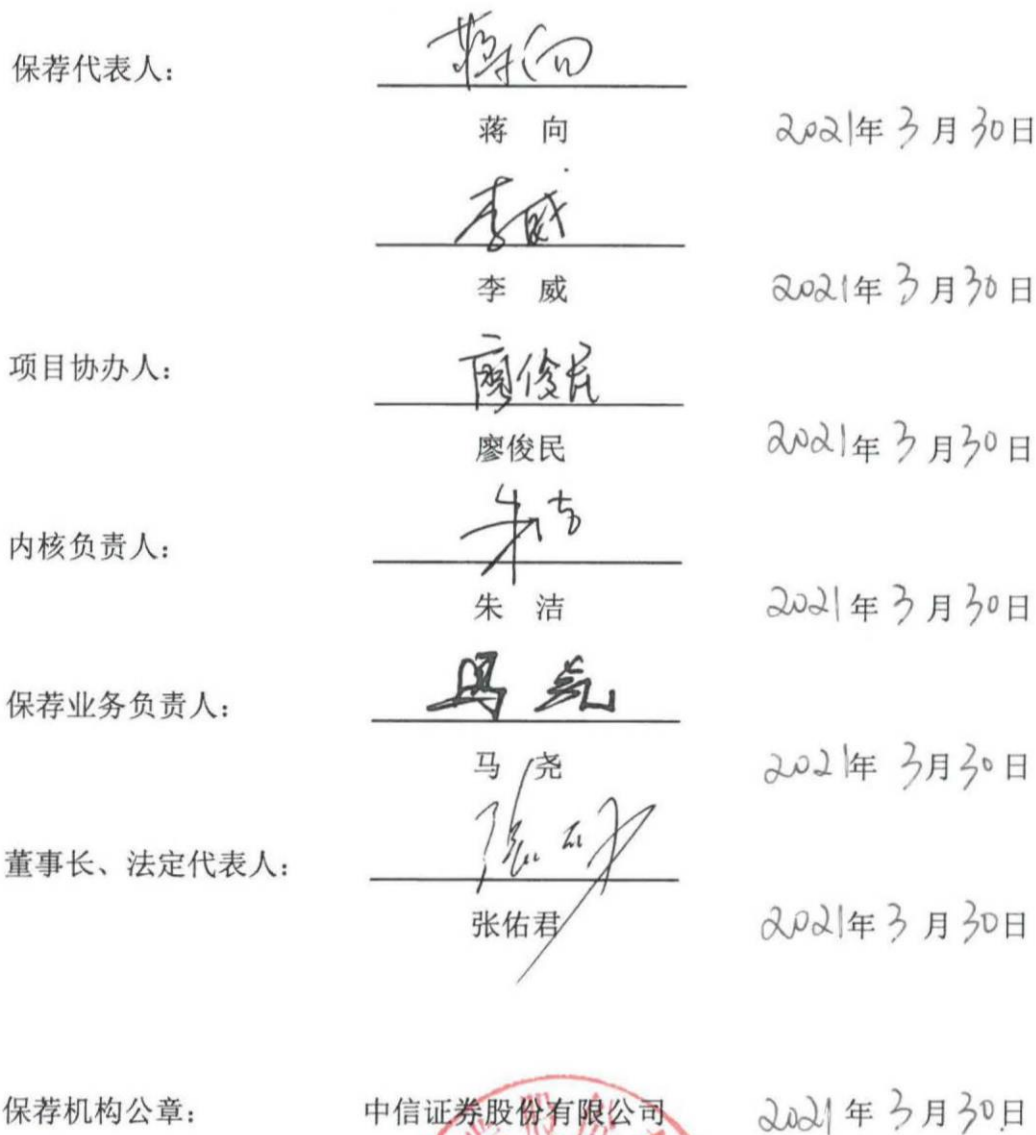 保荐代表人：
蒋向
蒋 向 2021年3月30日
李威
李 威 2021年3月30日
项目协办人：
廖俊民
廖俊民 2021年3月30日
内核负责人：
朱洁
朱 洁 2021年3月30日
保荐业务负责人：
马尧
马 尧 2021年3月30日
董事长、法定代表人：
张佑君 2021年3月30日
保荐机构公章： 中信证券股份有限公司 2021年3月30日